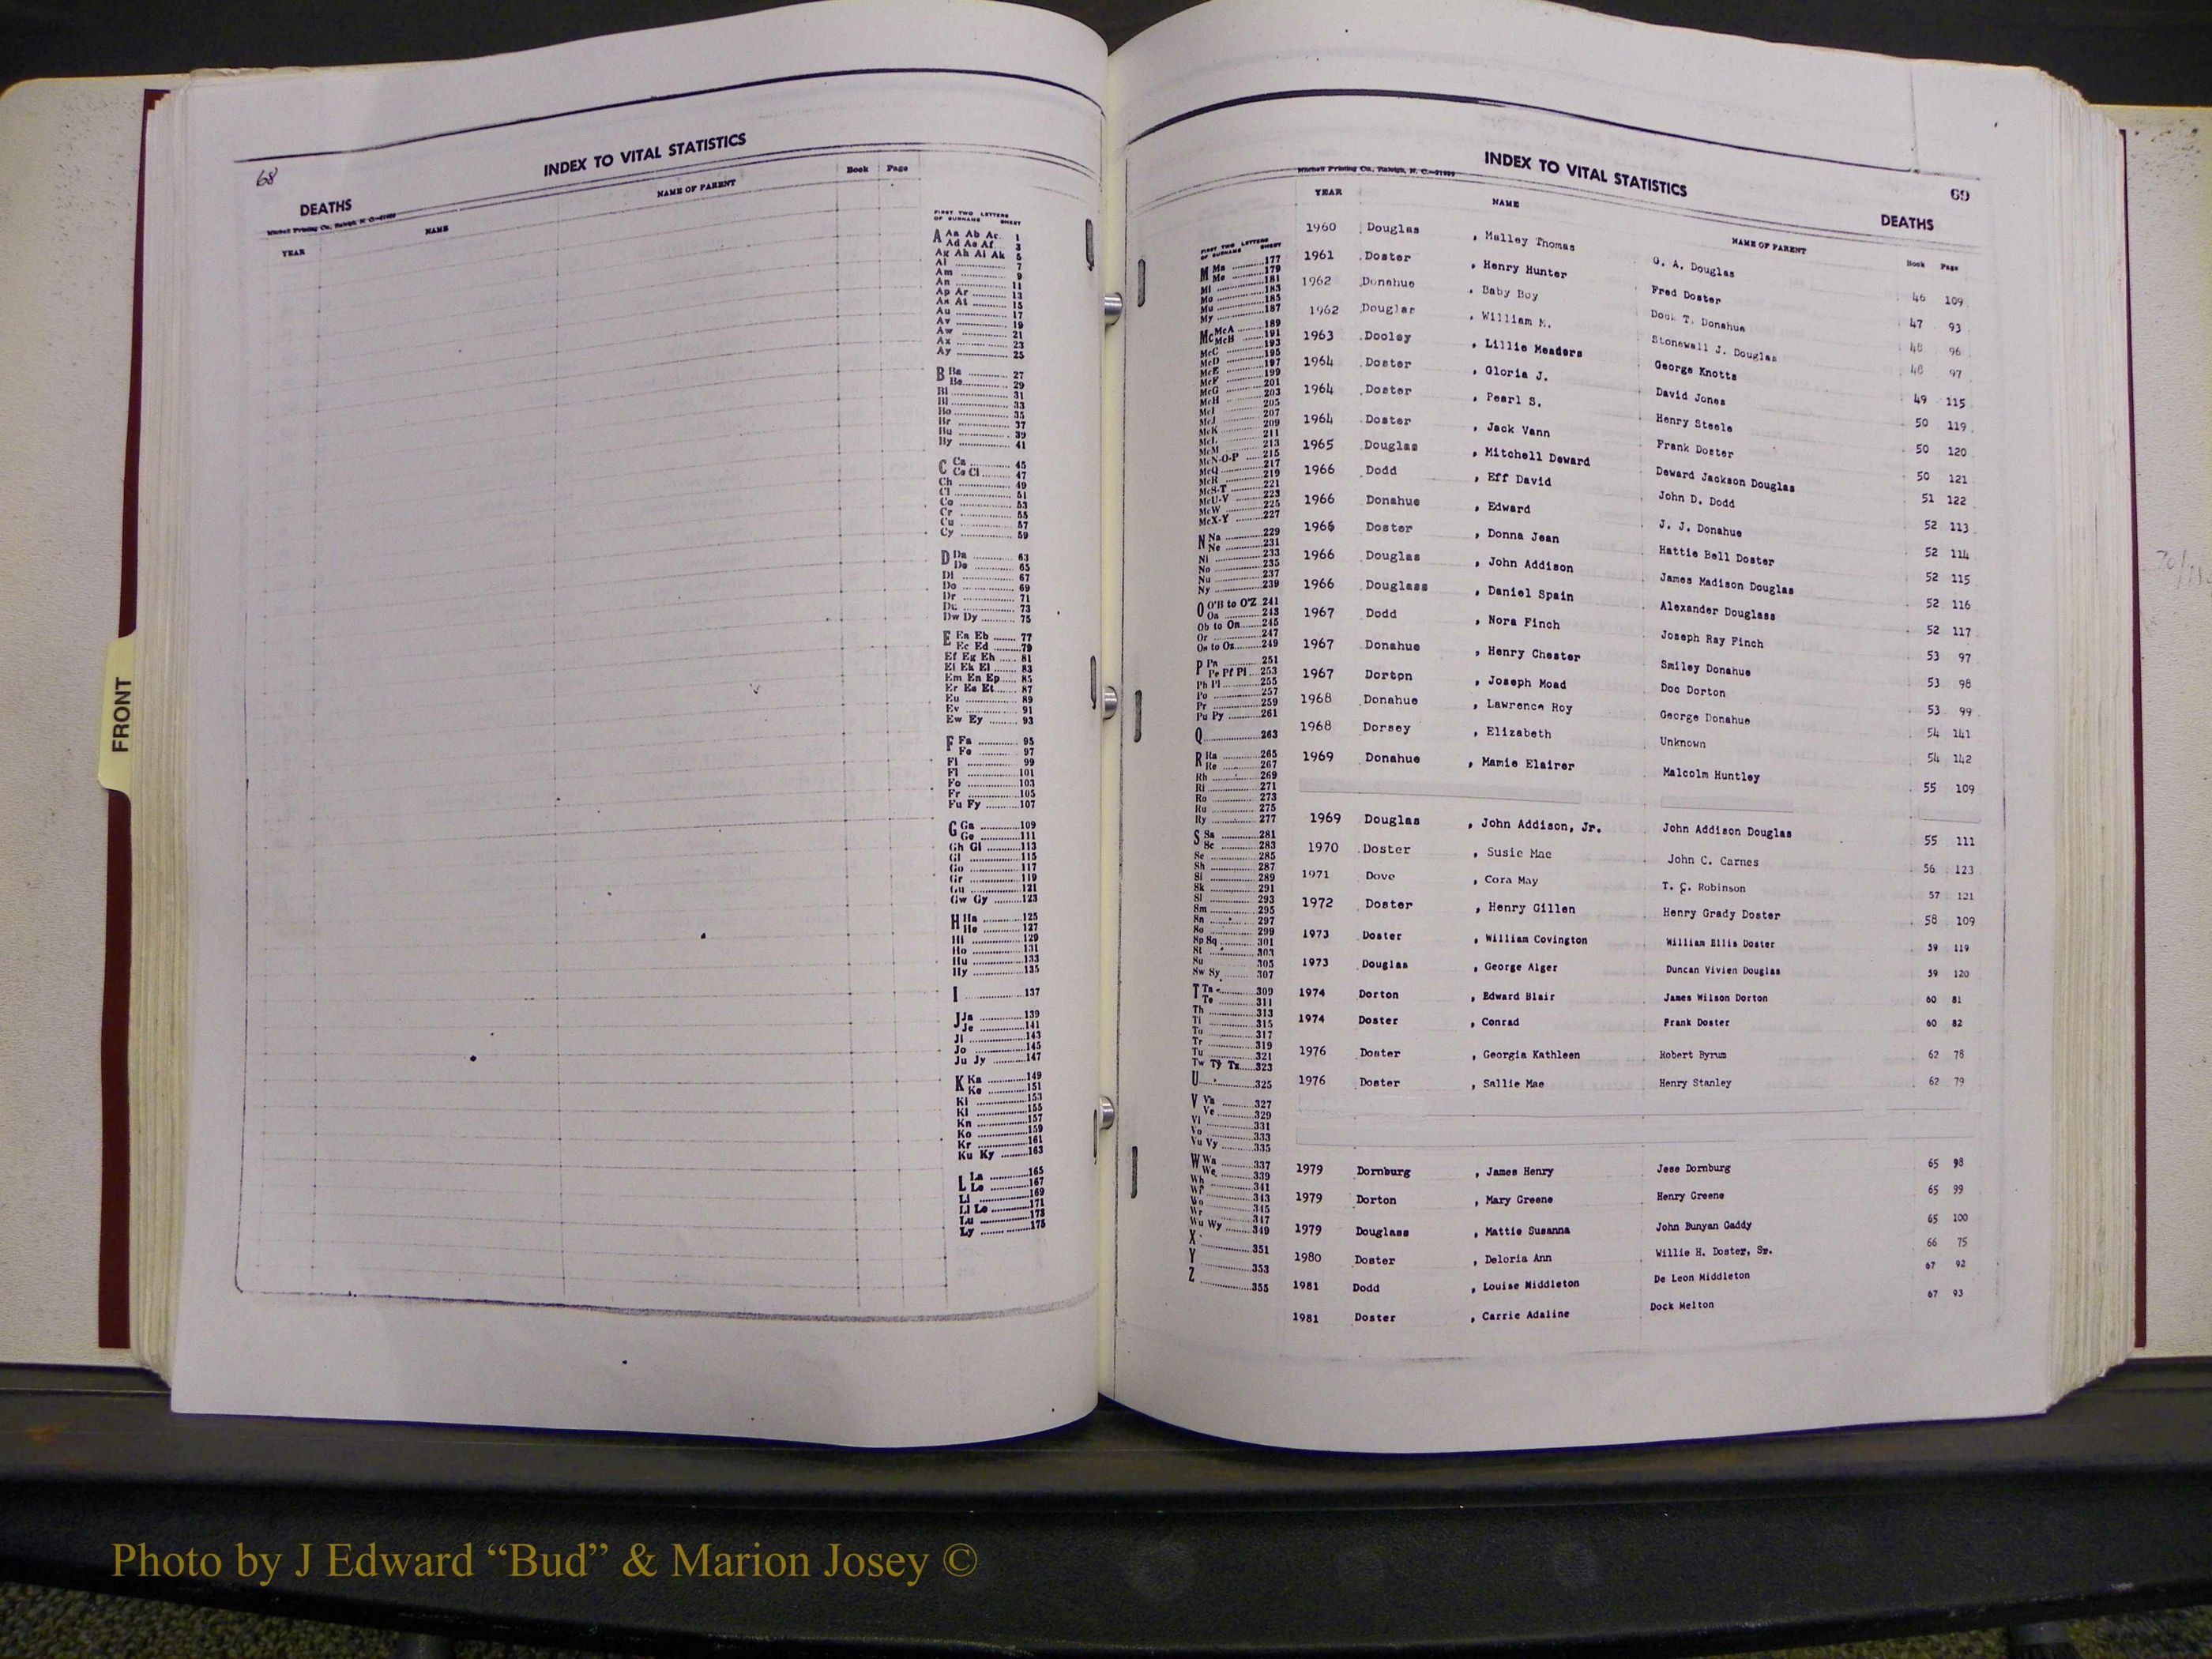 68
INDEX TO VITAL STATISTICS
DEATHS
YEAR NAME NAME OF PARENT Book Page
FIRST TWO LETTERS
OF SURNAME SHEET
A Aa Ab Ac 1
Ad Ae Af 3
Ag Ah Ai Ak 5
Al 7
Am 9
An 11
Ap Ar 13
As At 15
Au 17
Av 19
Aw 21
Ax 23
Ay 25
B Ba 27
Be 29
Bi 31
Bl 33
Bo 35
Br 37
Bu 39
By 41
C Ca 45
Ce Ci 47
Ch 49
Cl 51
Co 53
Cr 55
Cu 57
Cy 59
D Da 63
De 65
Di 67
Do 69
Dr 71
Du 73
Dw Dy 75
E Ea Eb 77
Ec Ed 79
Ef Eg Eh 81
Ei Ek El 83
Em En Ep 85
Er Es Et 87
Eu 89
Ev 91
Ew Ey 93
F Fa 95
Fe 97
Fi 99
Fl 101
Fo 103
Fr 105
Fu Fy 107
G Ga 109
Ge 111
Gh Gi 113
Gl 115
Go 117
Gr 119
Gu 121
Gw Gy 123
H Ha 125
He 127
Hi 129
Ho 131
Hu 133
Hy 135
I 137
J Ja 139
Je 141
Ji 143
Jo 145
Ju Jy 147
K Ka 149
Ke 151
Ki 153
Kl 155
Kn 157
Ko 159
Kr 161
Ku Ky 163
L La 165
Le 167
Li 169
Ll Lo 171
Lu 173
Ly 175
FRONT
INDEX TO VITAL STATISTICS
69
DEATHS
Mitchell Printing Co., Raleigh, N. C.
YEAR NAME NAME OF PARENT Book Page
FIRST TWO LETTERS
OF SURNAME SHEET
M Ma 177
Me 179
Mi 181
Mo 183
Mu 185
My 187
Mc McA 189
McB 191
McC 193
McD 195
McE 197
McF 199
McG 201
McH 203
McI 205
McJ 207
McK 209
McL 211
McM 213
McN-O-P 215
McQ 217
McR 219
McS-T 221
McU-V 223
McW 225
McX-Y 227
N Na 229
Ne 231
Ni 233
No 235
Nu 237
Ny 239
O O'B to O'Z 241
Oa 243
Ob to On 245
Or 247
Os to Oz 249
P Pa 251
Pe Pf Pi 253
Ph Pl 255
Po 257
Pr 259
Pu Py 261
Q 263
R Ra 265
Re 267
Rh 269
Ri 271
Ro 273
Ru 275
Ry 277
S Sa 281
Sc 283
Se 285
Sh 287
Si 289
Sk 291
Sl 293
Sm 295
Sn 297
So 299
Sp Sq 301
St 303
Su 305
Sw Sy 307
T Ta 309
Te 311
Th 313
Ti 315
To 317
Tr 319
Tu 321
Tw Ty Tz 323
U 325
V Va 327
Ve 329
Vi 331
Vo 333
Vu Vy 335
W Wa 337
We 339
Wh 341
Wi 343
Wo 345
Wr 347
Wu Wy 349
X 351
Y 353
Z 355
1960 Douglas , Malley Thomas G. A. Douglas 46 109
1961 Doster , Henry Hunter Fred Doster 47 93
1962 Donahue , Baby Boy T. Donahue 48 96
1962 Douglas , William M. Stonewall J. Douglas 48 97
1963 Dooley , Lillie Meaders George Knotts 49 115
1964 Doster , Gloria J. David Jones 50 119
1964 Doster , Pearl S. Henry Steele 50 120
1964 Doster , Jack Vann Frank Doster 50 121
1965 Douglas , Mitchell Deward Deward Jackson Douglas 51 122
1966 Dodd , Eff David John D. Dodd 52 113
1966 Donahue , Edward J. J. Donahue 52 114
1966 Doster , Donna Jean Hattie Bell Doster 52 115
1966 Douglas , John Addison James Madison Douglas 52 116
1966 Douglass , Daniel Spain Alexander Douglass 52 117
1967 Dodd , Nora Finch Joseph Ray Finch 53 97
1967 Donahue , Henry Chester Smiley Donahue 53 98
1967 Dorton , Joseph Moad Doc Dorton 53 99
1968 Donahue , Lawrence Roy George Donahue 54 141
1968 Dorsey , Elizabeth Unknown 54 142
1969 Donahue , Mamie Elairer Malcolm Huntley 55 109
1969 Douglas , John Addison, Jr. John Addison Douglas 55 111
1970 Doster , Susie Mae John C. Carnes 56 123
1971 Dove , Cora May T. C. Robinson 57 121
1972 Doster , Henry Gillen Henry Grady Doster 58 109
1973 Doster , William Covington William Ellis Doster 59 119
1973 Douglas , George Alger Duncan Vivien Douglas 59 120
1974 Dorton , Edward Blair James Wilson Dorton 60 81
1974 Doster , Conrad Frank Doster 60 82
1976 Doster , Georgia Kathleen Robert Byrum 62 78
1976 Doster , Sallie Mae Henry Stanley 62 79
1979 Dornburg , James Henry Jese Dornburg 65 98
1979 Dorton , Mary Greene Henry Greene 65 99
1979 Douglass , Mattie Susanna John Bunyan Gaddy 65 100
1980 Doster , Deloria Ann Willie H. Doster, Sr. 66 75
1981 Dodd , Louise Middleton De Leon Middleton 67 92
1981 Doster , Carrie Adaline Dock Melton 67 93
Photo by J Edward “Bud” & Marion Josey ©